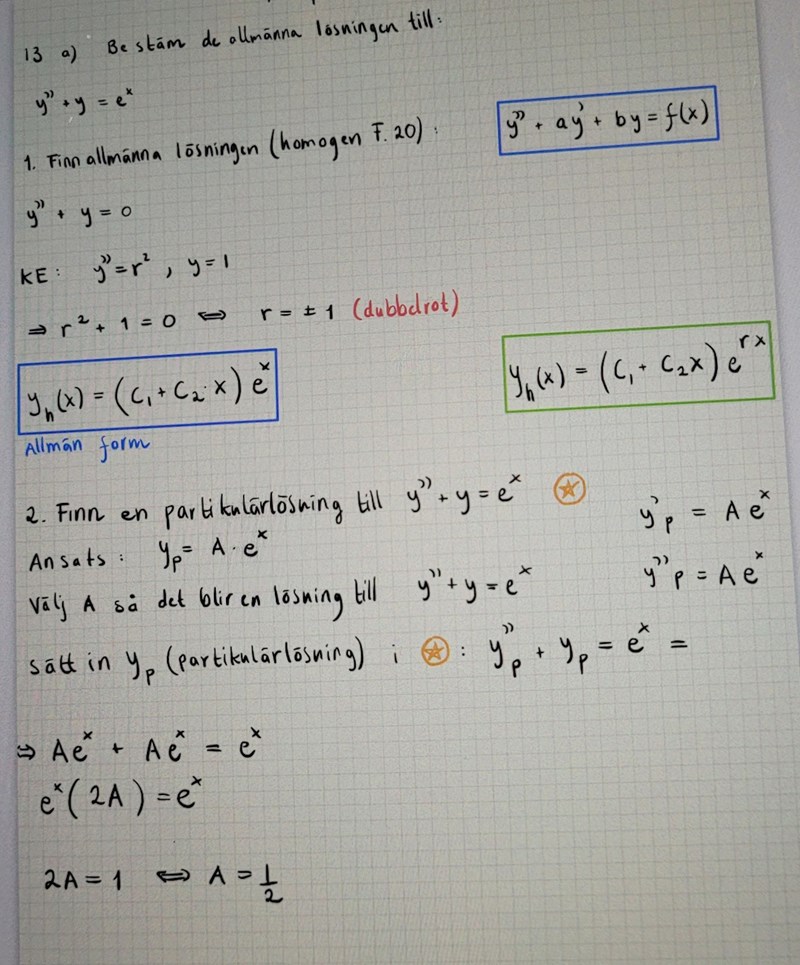 13 a) Bestäm de allmänna lösningen till:
y'' + y = eˣ
y'' + ay' + by = f(x)
1. Finn allmänna lösningen (homogen F.20):
y'' + y = 0
KE: y'' = r², y = 1
⇒ r² + 1 = 0 ⇔ r = ± 1 (dubbelrot)
yₕ(x) = (C₁ + C₂· x) eˣ
yₕ(x) = (C₁ + C₂x) e^{rx}
Allmän form
2. Finn en partikulärlösning till y'' + y = eˣ ⍟
y'ₚ = A eˣ
Ansats: yₚ = A · eˣ
y''ₚ = A eˣ
Välj A så det blir en lösning till y'' + y = eˣ
sätt in yₚ (partikulärlösning) i ⍟: y''ₚ + yₚ = eˣ =
⇒ Aeˣ + Aeˣ = eˣ
eˣ(2A) = eˣ
2A = 1 ⇔ A = 1/2